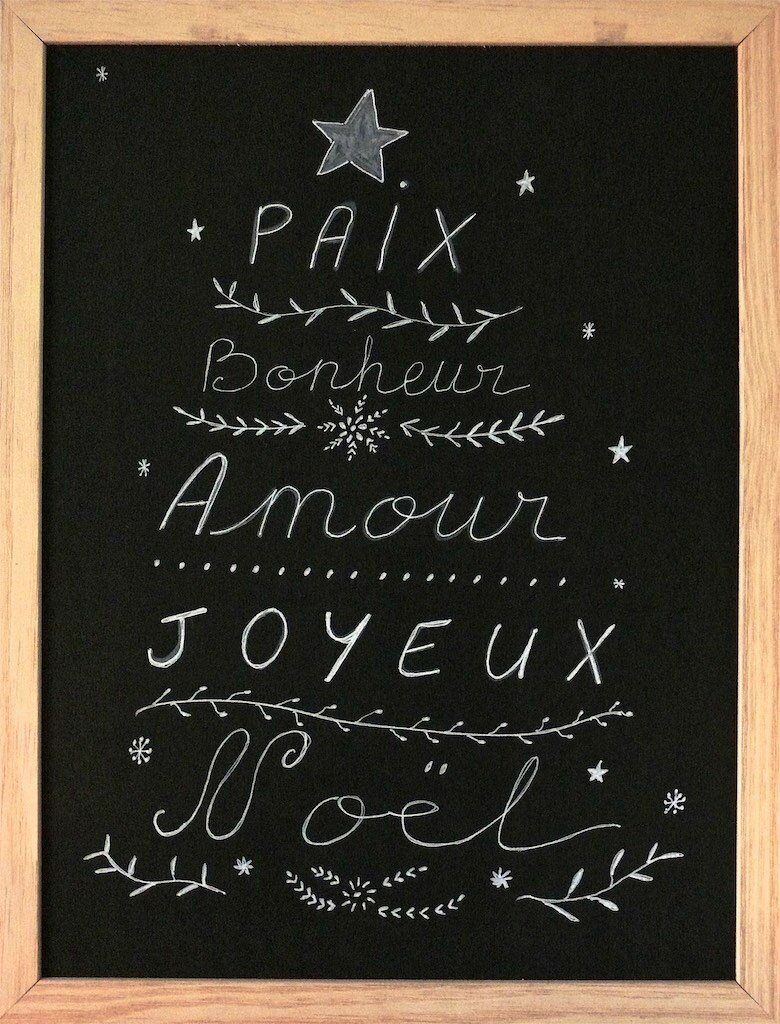 PAiX
Bonheur
Amour
JOYEUX
Noël